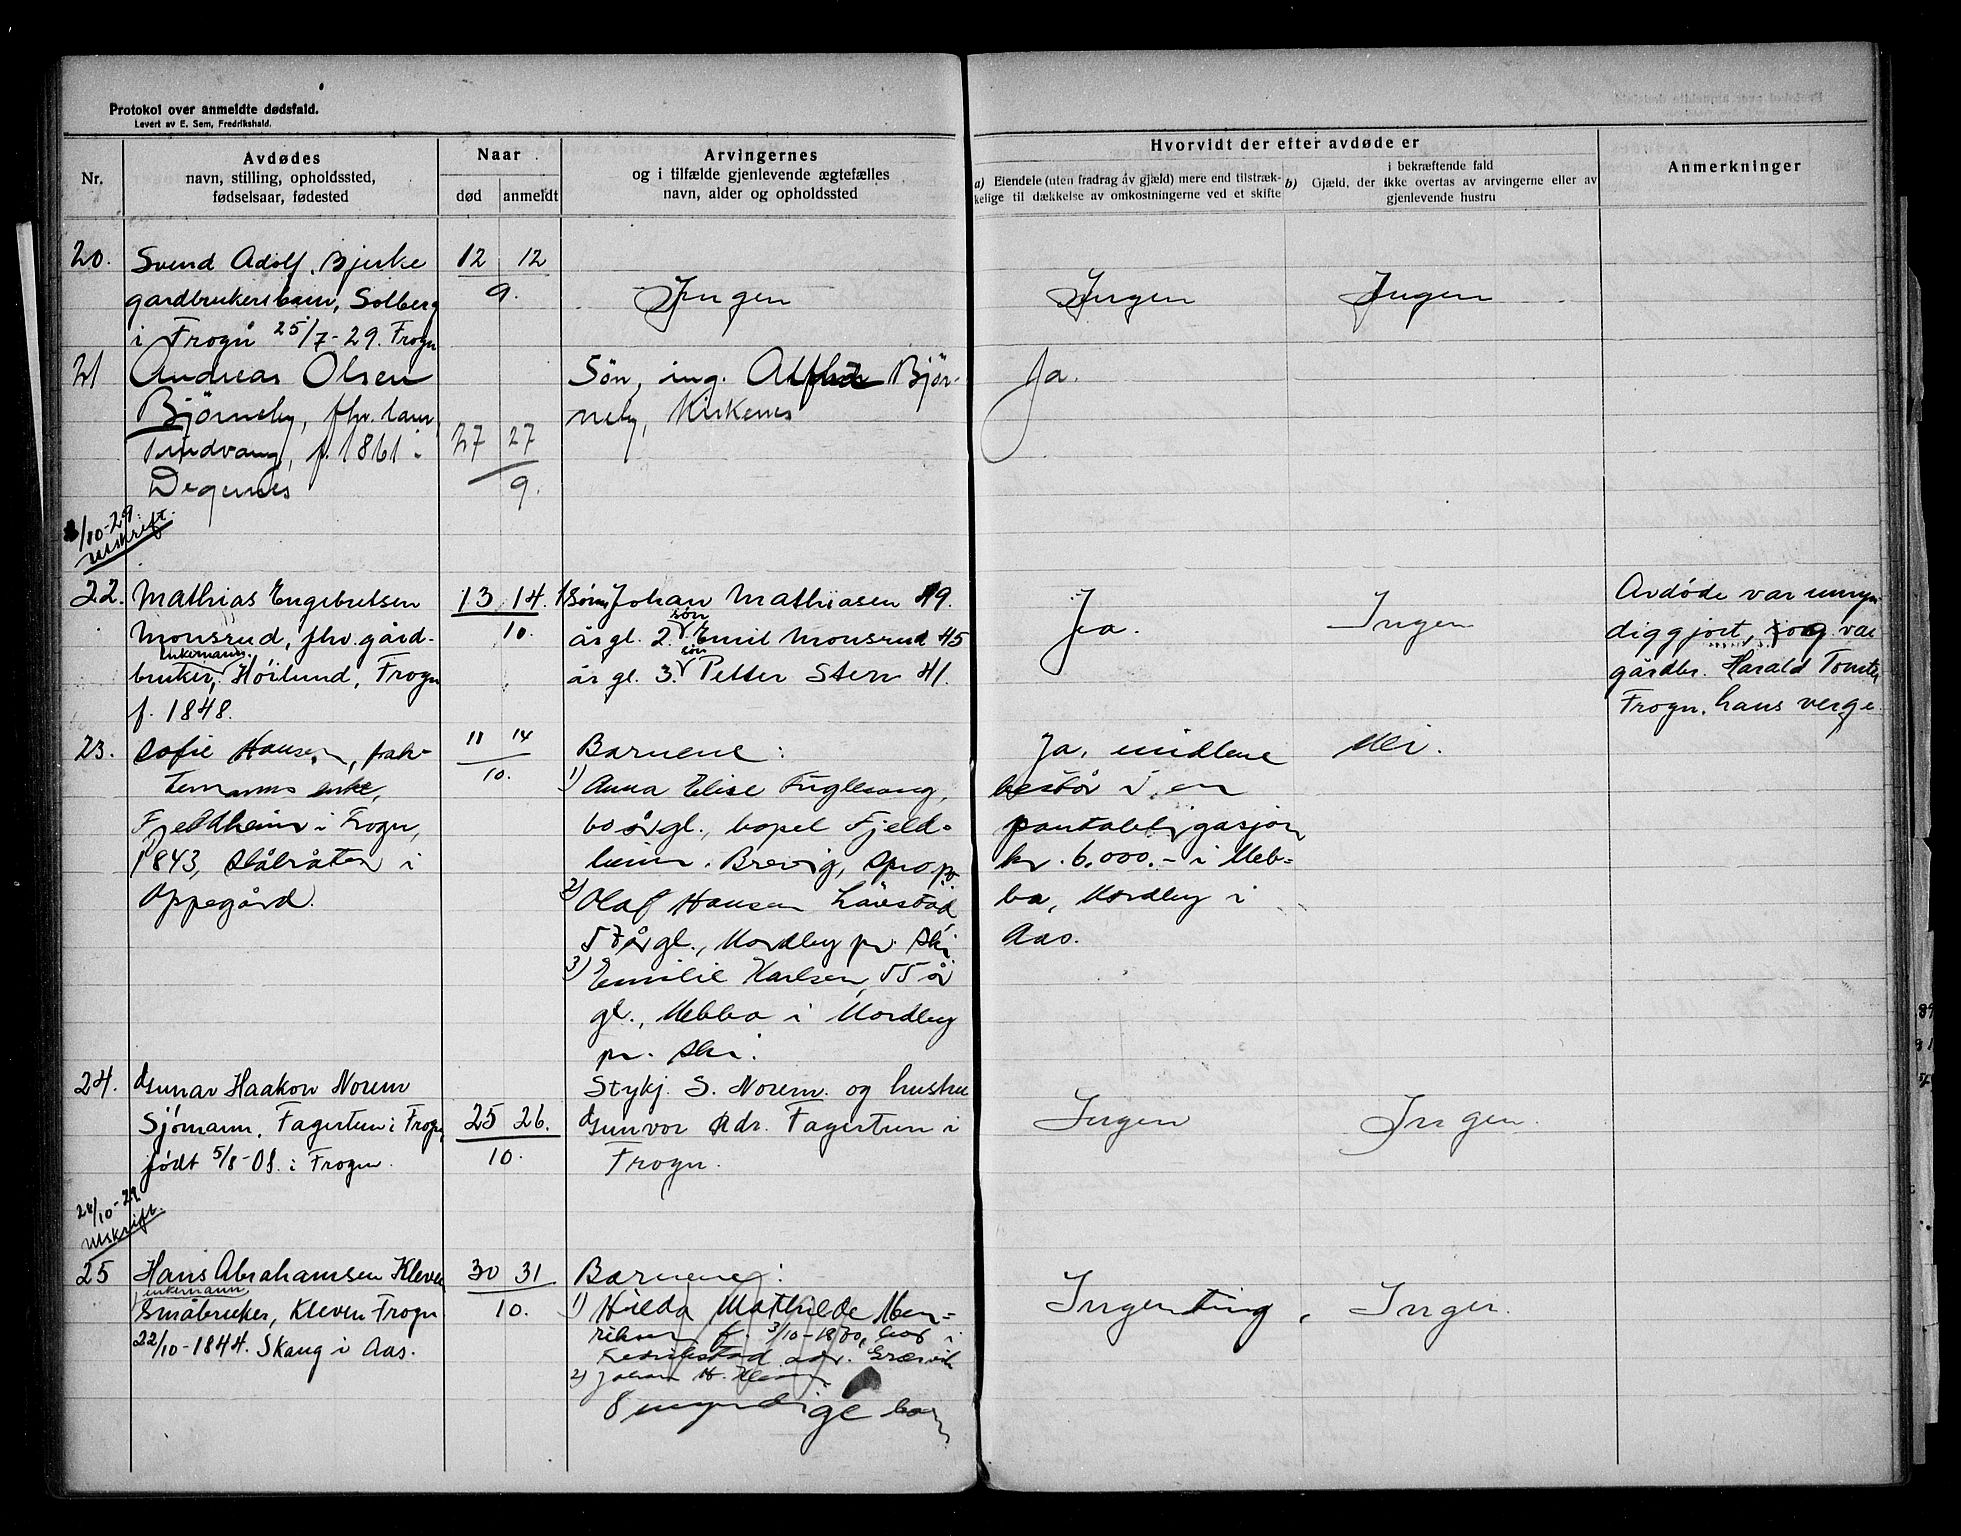 Protokol over anmeldte dødsfald.
Levert av E. Sem, Fredrikshald.
Nr.
Avdødes
navn, stilling, opholdssted,
fødselsaar, fødested
Naar
død
anmeldt
Arvingernes
og i tilfælde gjenlevende ægtefælles
navn, alder og opholdssted
Hvorvidt der efter avdøde er
a) Eiendele (uten fradrag av gjæld) mere end tilstræk-
kelige til dækkelse av omkostningerne ved et skifte
i bekræftende fald
b) Gjæld, der ikke overtas av arvingerne eller av
gjenlevende hustru
Anmerkninger
20.
Svend Adolf Bjerke
gardbrukersbarn, Solberg
i Frogn 25/7-29. Frogn
12 12
9.
Ingen
Ingen
Ingen
21
Andreas Olsen
Bjørneby, fhv.
f. 1861 i
Degernes
27 27
9.
Søn, ing. Alf Bjør-
neby, Kirkenes
Ja.
/10-29.
utskrift.
22.
Mathias Engebretsen
Monsrud, fhv. gård-
enkemann.
bruker, Höilund, Frogn
f. 1848.
13 14.
10.
1. Sønn Johan Mathiasen 49.
søn
år gl. 2. Emil Monsrud 45
søn
år gl. 3. Petter Stern 41.
Ja.
Ingen
Avdøde var umyn-
diggjort, og var
gårdbr. Harald Tomter
Frogn, hans verge.
23.
Sofie Hansen, frak-
temanns enke,
Fjeldheim i Frogn,
1843, Slåbråten i
Oppegård.
11 14
10.
Barnene:
1) Anna Elise Fuglesang,
60 år gl., bopel Fjeld-
heim. Brevig, Spro p.
2) Olaf Hansen
57 år gl., Nordby pr. Ski
3) Emilie Karlsen, 55 år
gl., Nebba i Nordby
pr. Ski.
Ja, midlene
består i en
pantobligasjon
kr. 6.000.- i Neb-
ba, Nordby i
Aas.
Nei.
24.
Gunnar Haakon Norem
Sjømann, Fagertun i Frogn,
født 5/8-08. i Frogn.
25 26.
10.
Stykj. S. Norem. og hustru
Gunvor adr. Fagertun i
Frogn.
Ingen
Ingen.
/10-29
utskrift.
25
Hans Abrahamsen Kleven
enkemann
Småbruker, Kleven Frogn
22/10-1844. Skaug i Aas.
30 31
10.
Barnene:
1) Hilda Mathilde Hen-
riksen f. 3/10-1870, bor i
Fredrikstad adr.
2) Johan H. Kleven
8 myndige barn
Ingenting,
Ingen.